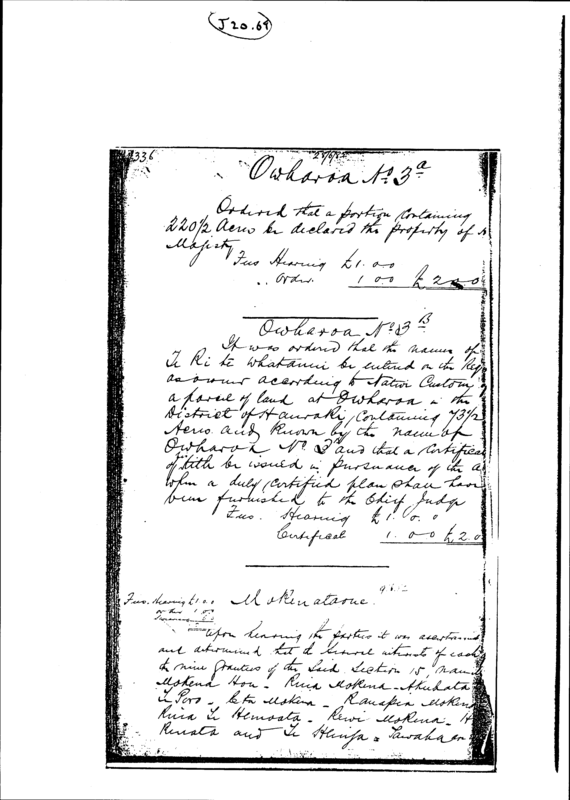 J 20.69
336
Owharoa No 3a
Ordered that a portion containing
220 1/2 Acres be declared the property of
Majesty
Fees Hearing £1.00
" Order 1 00 £2.00
Owharoa No 3 B
It was ordered that the names of
Te Ri te Whatamii be entered on the Reg
as owner according to Native Custom
a parcel of land at Owharoa in the
District of Hauraki, Containing 73 1/2
Acres and known by the name of
Owharoa No 3 and that a Certificat
of title be issued in pursuance of the A
when a duly certified plan shall have
been furnished to the Chief Judge
Fees. Hearing £1. 0. 0
Certificate 1. 00 £2.0
Fees. Hearing £1.00
Mokenataone.
Upon hearing the parties it was ascertained
and determined that the several interests of each
the nine grantees of the said Section 15, nam
Mokena Hou - Riria Mokena - Akuhata
Te Poro - Mokena - Ranapia Moken
Riria Te Hemoata - Rewi Mokena - H
Renata and Te